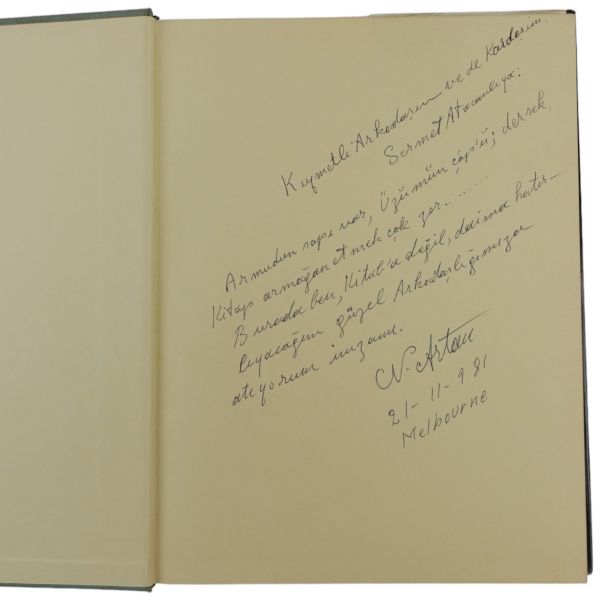 Kıymetli Arkadaşım ve de Kardeşim.
Sermet Atacanlıya:
Armudun sapı var, Üzümün çöp'ü; dersek,
Kitap armağan etmek çok zor........
Burada ben, Kitab'a değil, daima hatır-
lıyacağım güzel Arkadaşlığımıza
atıyorum imzamı.
N. Artan
21-11-981
Melbourne